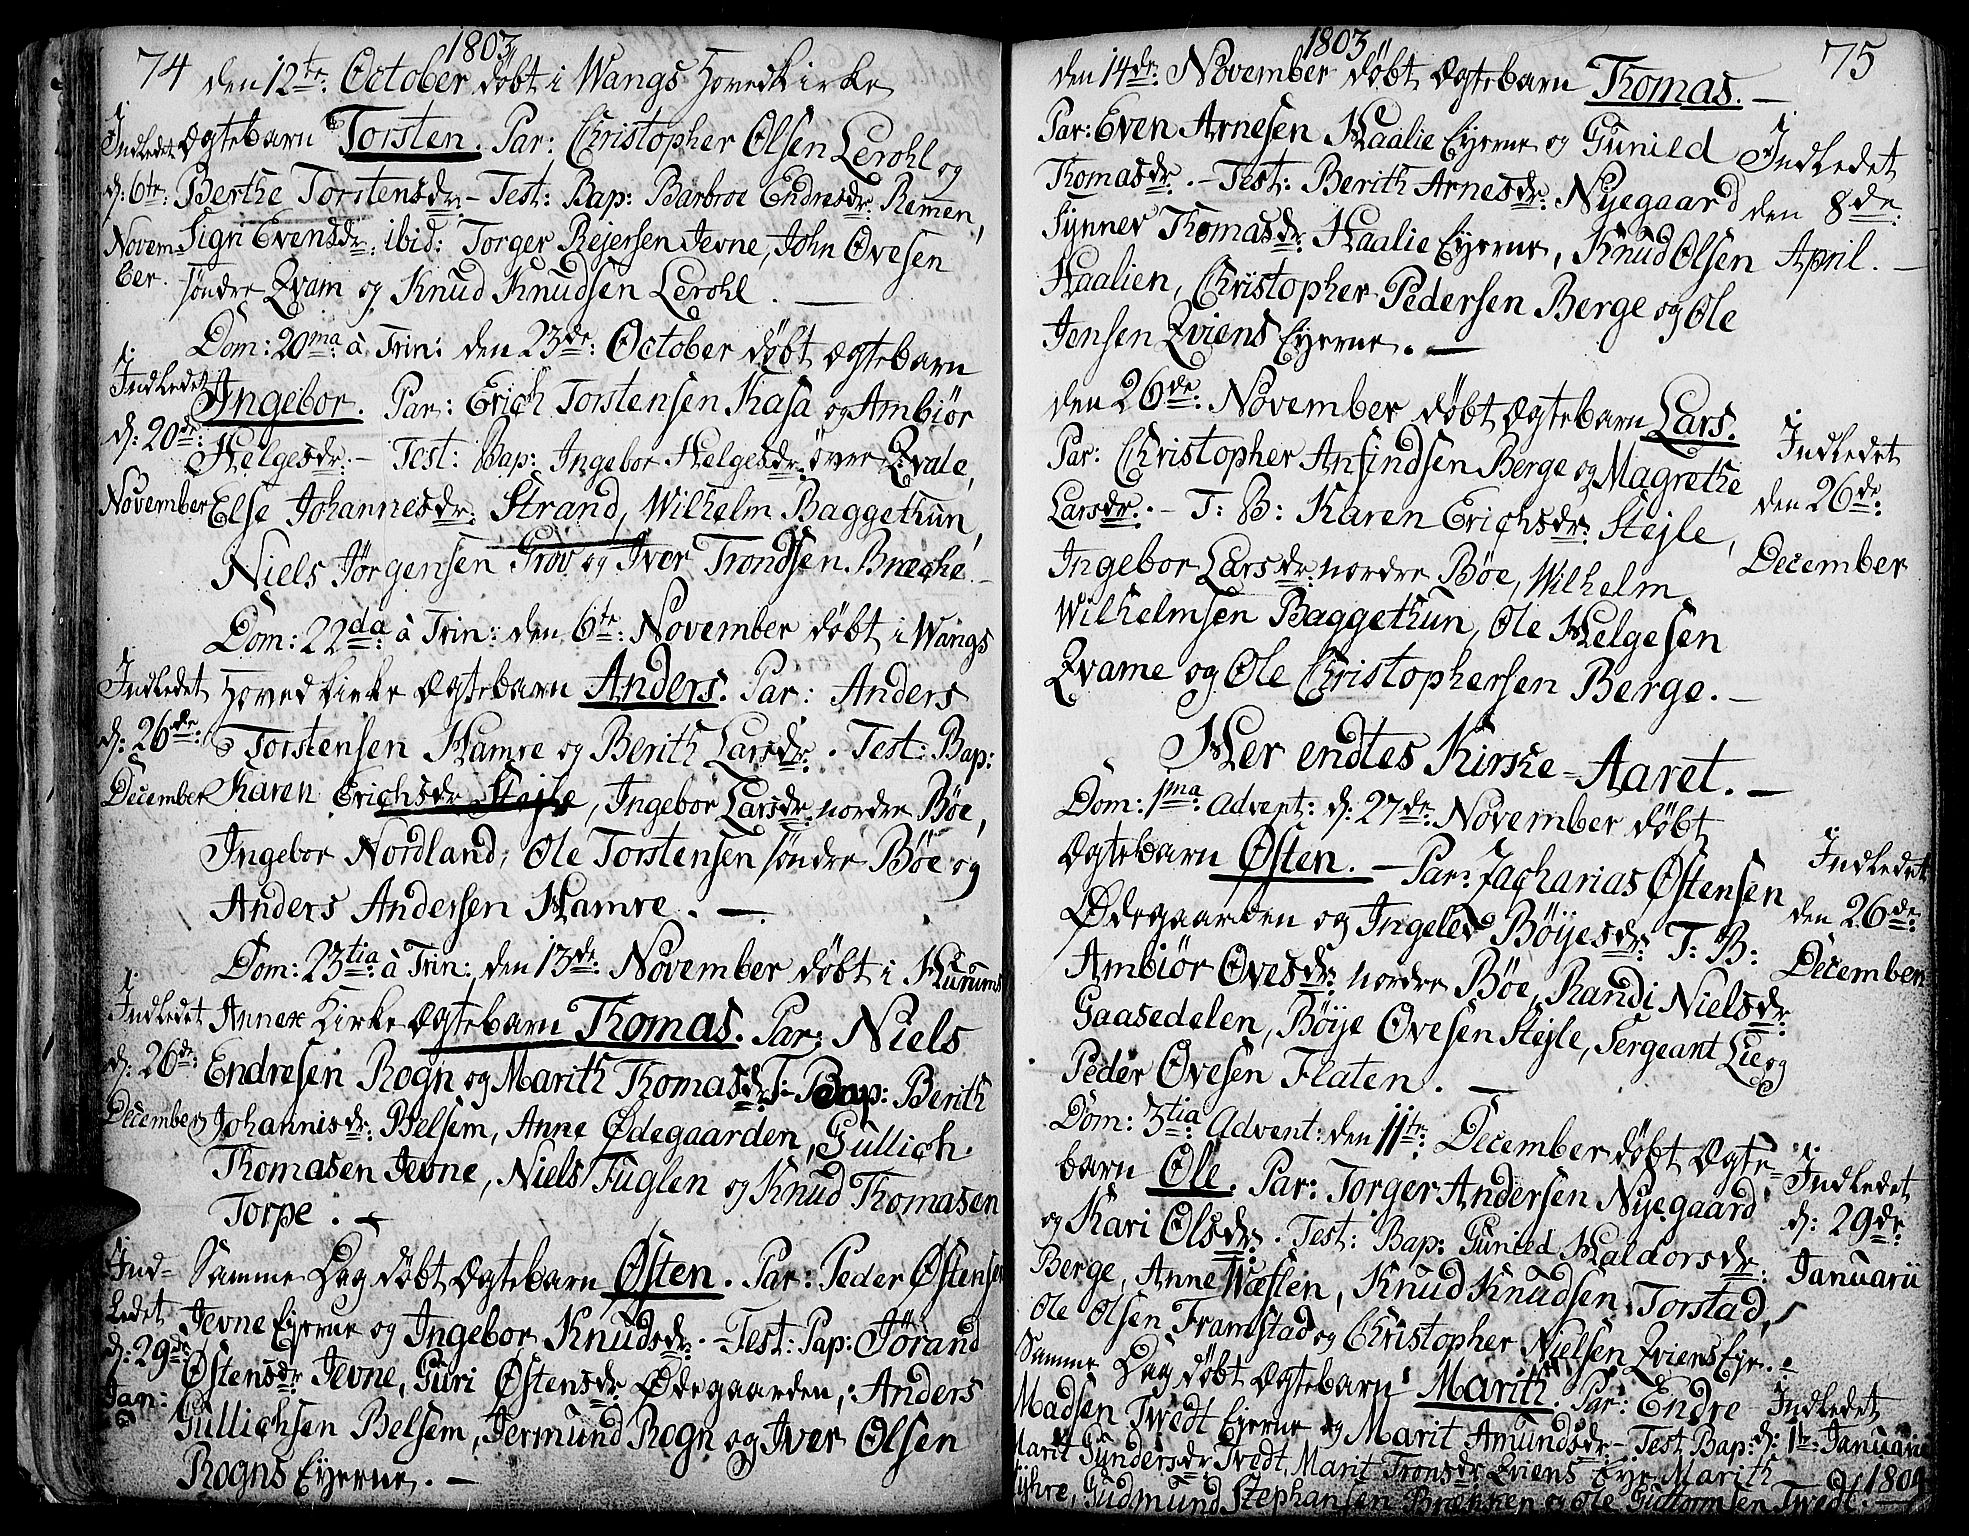 74
1803
den 12te: October döbt i Wangs Hovedkirke
Ægtebarn Torsten. Par: Christopher Olsen Lerohl og
Berthe Torstensdr: - Test: Bap: Barbroe Endresdr: Remen,
Sigri Evensdr: ibid: Torger Rejersen Jevne, John Ovesen
söndre Qvam og Knud Knudsen Lerohl. —
Indledet
d: 6te:
Novem-
ber.
Dom: 20ma: à Trin: den 23de: October döbt Ægtebarn
Ingebor. Par: Erich Torstensen Kasa og Ambiör
Helgesdr: - Test: Bap: Ingebor Helgesdr: över Qvale,
Else Johannesdr: Strand, Wilhelm Baggethun,
Niels Jörgensen Grov og Iver Trondsen Bræche. -
Indledet
d: 20de:
November
Dom: 22da: à Trin: den 6te: November döbt i Wangs
Hovedkirke Ægtebarn Anders. Par: Anders
Torstensen Hamre og Berith Larsdr: . Test: Bap:
Karen Erichsdr Stejle, Ingebor Larsdr: nordre Böe,
Ingebor Nordland, Ole Torstensen söndre Böe og
Anders Andersen Hamre. —
Indledet
d: 26de:
December
Dom: 23tia: à Trin: den 13de: November döbt i Hurums
Annex Kirke Ægtebarn Thomas. Par: Niels
Endresen Rogn og Marith Thomasdr: T: Bap: Berith
Johannisdr: Belsem, Anne Ødegaarden, Gullich
Thomasen Jevne, Niels Fuglen og Knud Thomasen
Torpe. —
Indledet
d: 26de:
December
Samme Dag döbt Ægtebarn Østen. Par: Peder Østensen
Jevne Ejerne og Ingebor Knudsdr: - Test: Bap: Jörand
Østensdr Jevne, Guri Østensdr Ødegaarden, Anders
Gullichsen Belsem, Jermund Rogn og Iver Olsen
Rogns Eyerne. —
Ind-
ledet
d: 29de
Jan:
75
1803
den 14de: November döbt Ægtebarn Thomas. —
Par: Even Arnesen Haalie Eyerne og Gunild
Thomasdr. - Test: Berith Arnesdr: Nyegaard
Synnev Thomasdr: Haalie Eyerne, Knud Olsen
Haalien, Christopher Pedersen Berge og Ole
Jensen Qviens Eyerne. —
Indledet
den 8de:
April. —
den 26de: November döbt Ægtebarn Lars.
Par: Christopher Anfindsen Berge og Magrethe
Larsdr: . - T: B: Karen Erichsdr: Stejle,
Ingebor Larsdr: nordre Böe, Wilhelm
Wilhelmsen Baggethun, Ole Helgesen
Qvame og Ole Christophersen Berge. —
Indledet
den 26de:
December
Her endtes Kirke-Aaret. —
Dom: 1ma: Advent: d: 27de: November döbt
Ægtebarn Østen. - Par: Zacharias Østensen
Ødegaarden og Ingeled Böyesdr: T: B:
Ambiör Ovesdr: nordre Böe, Randi Nielsdr:
Gaasedelen, Böye Ovesen Stejle, Sergeant Lie og
Peder Ovesen Flaten. —
Indledet
den 26de:
December
Dom: 3tia: Advent: den 11te: December döbt Ægte-
barn Ole. Par: Torger Andersen Nyegaard
og Kari Olsdr: . Test: Bap: Gunild Haldorsdr:
Berge, Anne Wæslen, Knud Knudsen Torstad,
Ole Olsen Framstad og Christopher Nielsen Qviens Eyr. -
Indledet
d: 29de:
Januarii
Samme Dag döbt Ægtebarn Marith. Par: Endre
Madsen Twedt Eyerne og Marit Amundsdr - Test: Bap:
Marit Gundersdr Tvedt, Marit Tronsdr Qviens Eyr Marith
Gudmund Stephansen Brækken og Ole Guttormsen Twedt.
Indledet
d: 1te: Januarii
1804